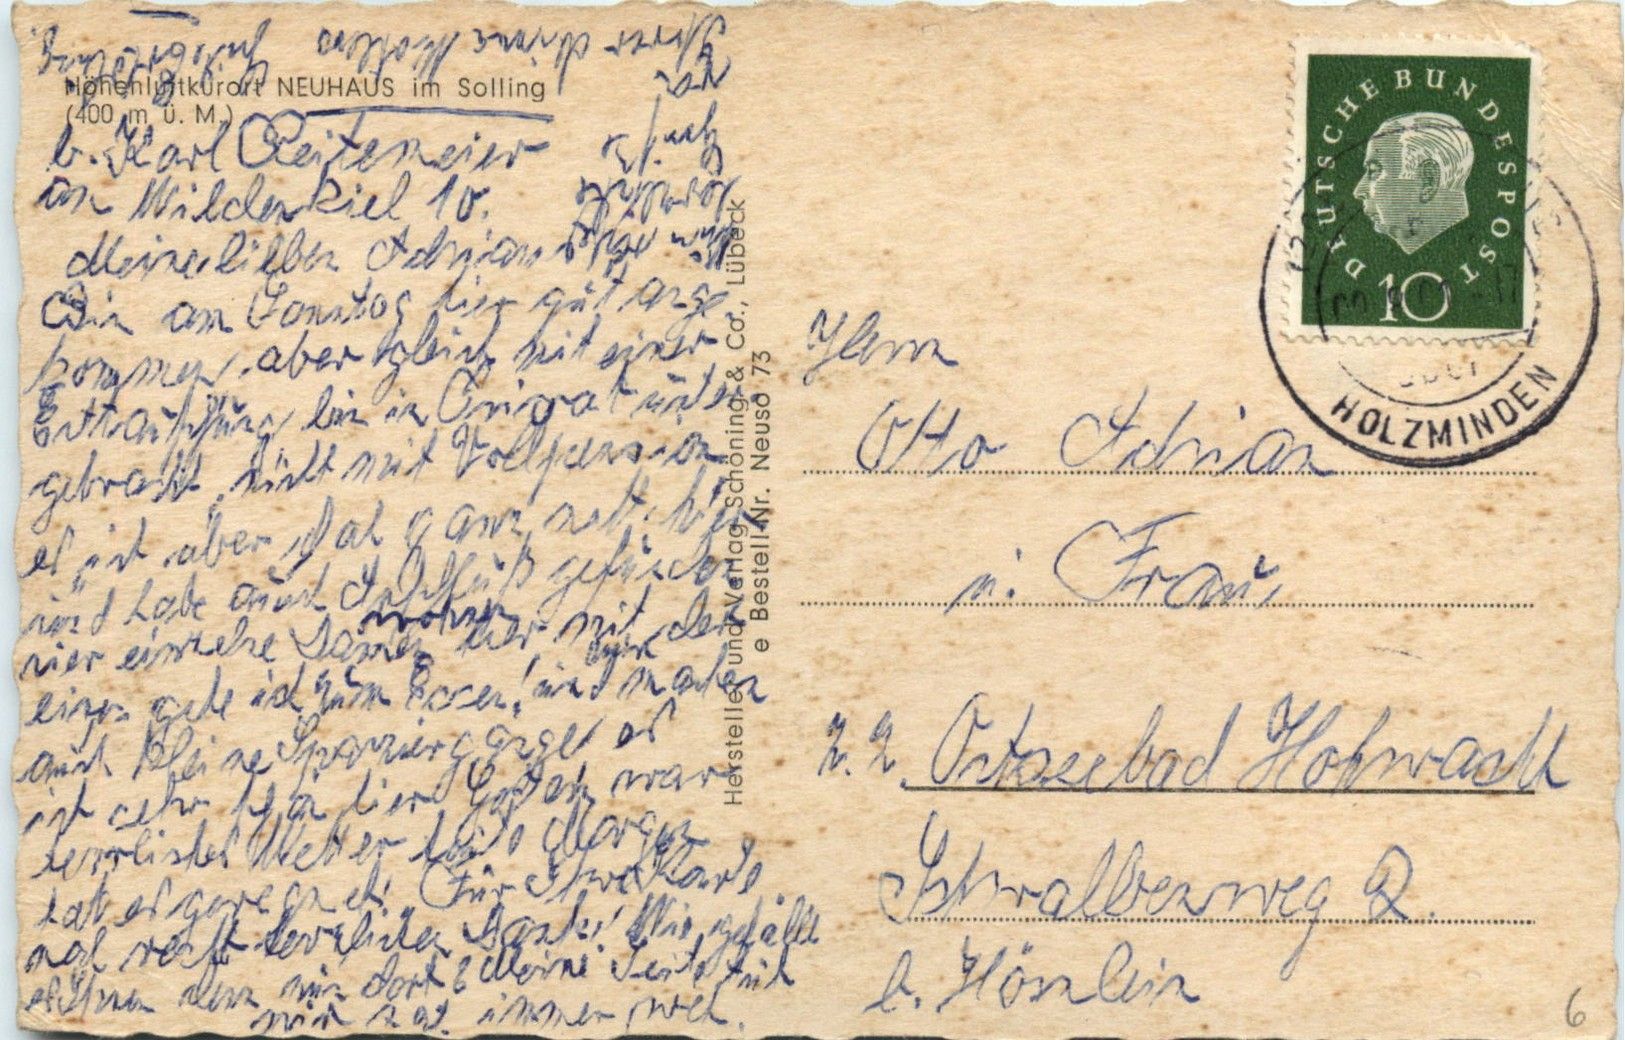 Höhenluftkurort NEUHAUS im Solling
(400 m ü. M.)
b. Karl Reitemeier
im Wildenkiel 10.
Meine lieben Adrians
Bin am Sonntag hier gut ange
kommen, aber gleich mit einer
Enttäuschung, bin in Privat unter
gebracht, nicht mit Vollpension
es ist aber ganz nett hier
und habe auch Anschluß gefunden
vier einzelne Damen wohnen hier mit den
einen gehe ich zum Essen! und machen
auch kleine Spaziergänge, es
ist sehr schön hier Gestern war
herrliches Wetter heute Morgen
hat es geregnet! Für Ihre Karte
noch recht herzlichen Dank! Wie gefällt
es Ihnen denn nun dort? Meine Seite tut
mir immer noch
Hersteller und Verlag Schöning & Co., Lübeck
e Bestell-Nr. Neuso 73
DEUTSCHE BUNDESPOST
10
HOLZMINDEN
Herrn
Otto Adrian
u. Frau,
z. Z. Ostseebad Hohwacht
Schwalbenweg 2.
b. Hönlein
6